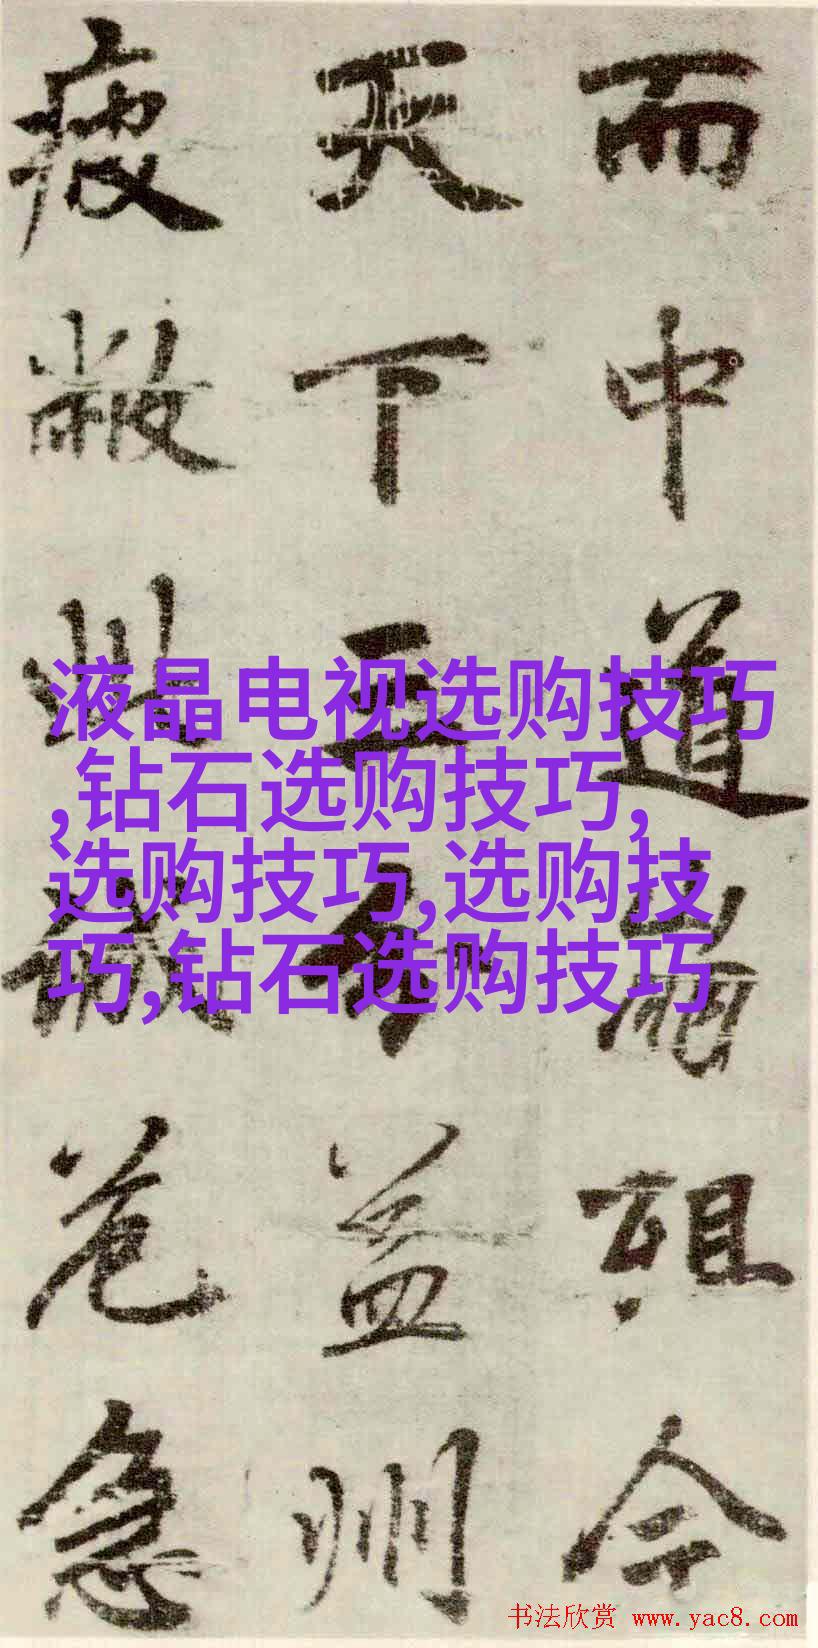 而中道崩殂今
天下三分益州
疲敝此誠危急
液晶电视选购技巧
,钻石选购技巧,
选购技巧,选购技
巧,钻石选购技巧
书法欣赏 www.yac8.com